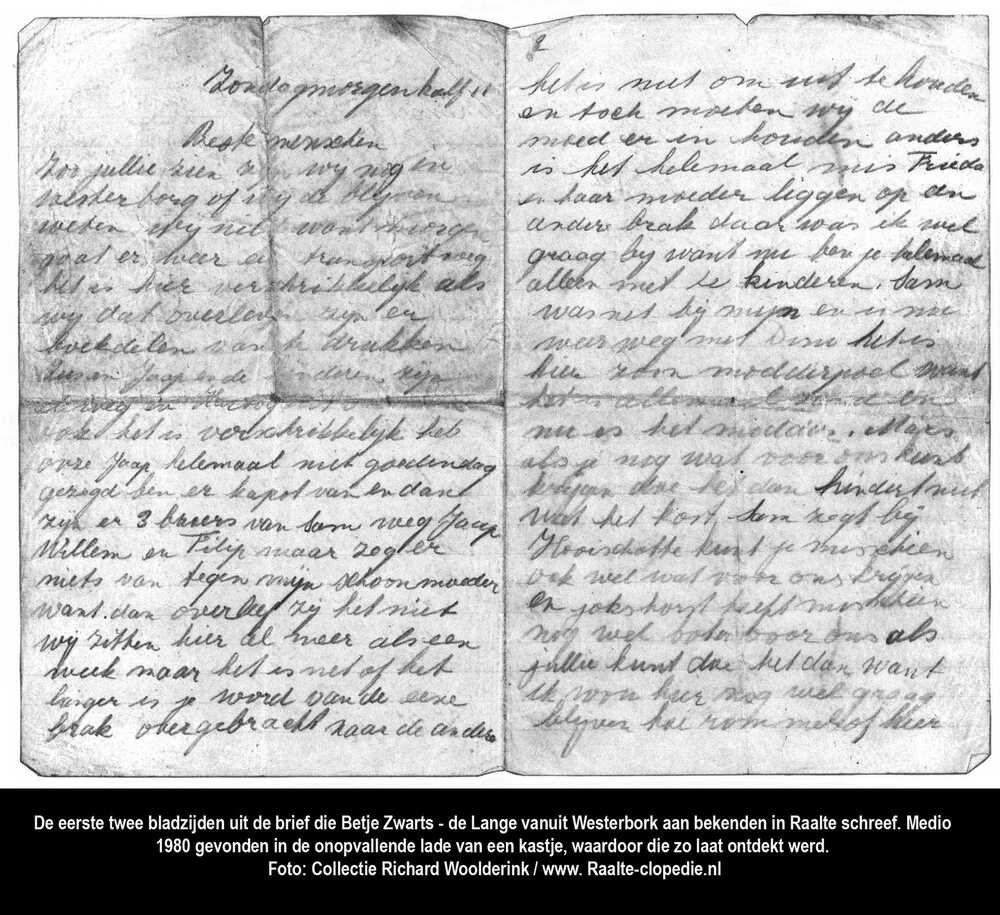 Zondagmorgen half 11
Beste menschen
Zoo jullie zien zijn wij nog in
Westerborg of wij de blijven
weten wij niet want morgen
gaat er weer en transport weg
het is hier verschrikkelijk als
wij dat overleven zijn er
boekdelen van te drukken
Jaap en de kinderen zijn
al weg in
ook het is verschrikkelijk heb
onze Jaap helemaal niet goedendag
gezegd ben er kapot van en dan
zijn er 3 broers van Sam weg Jaap
Willem en Filip maar zeg er
niets van tegen mijn schoonmoeder
want dan overleef zij het niet
wij zitten hier al meer als een
week maar het is net of het
langer is je word van de eene
brak overgebracht naar de andere
2
het is niet om uit te houden
en toch moeten wij de
moed er in houden anders
is het helemaal mis Frieda
en haar moeder liggen op en
andere brak daar was ik wel
graag bij want nu ben je helemaal
alleen met de kinderen. Sam
was net bij mijn en is nu
weer weg met het is
hier zoon modderpoel want
het is allemaal zand en
nu is het modder. Mies
als je nog wat voor ons kunt
krijgen doe het dan hindert niet
wat het kost, Sam zegt bij
Hooischotte kunt je misschien
ook wel wat voor ons krijgen
en jokshorst heeft misschien
nog wel boter voor ons als
jullie kunt doe het dan want
ik wou hier nog wel graag
blijven hoe rommel of hier
De eerste twee bladzijden uit de brief die Betje Zwarts - de Lange vanuit Westerbork aan bekenden in Raalte schreef. Medio
1980 gevonden in de onopvallende lade van een kastje, waardoor die zo laat ontdekt werd.
Foto: Collectie Richard Woolderink / www. Raalte-clopedie.nl